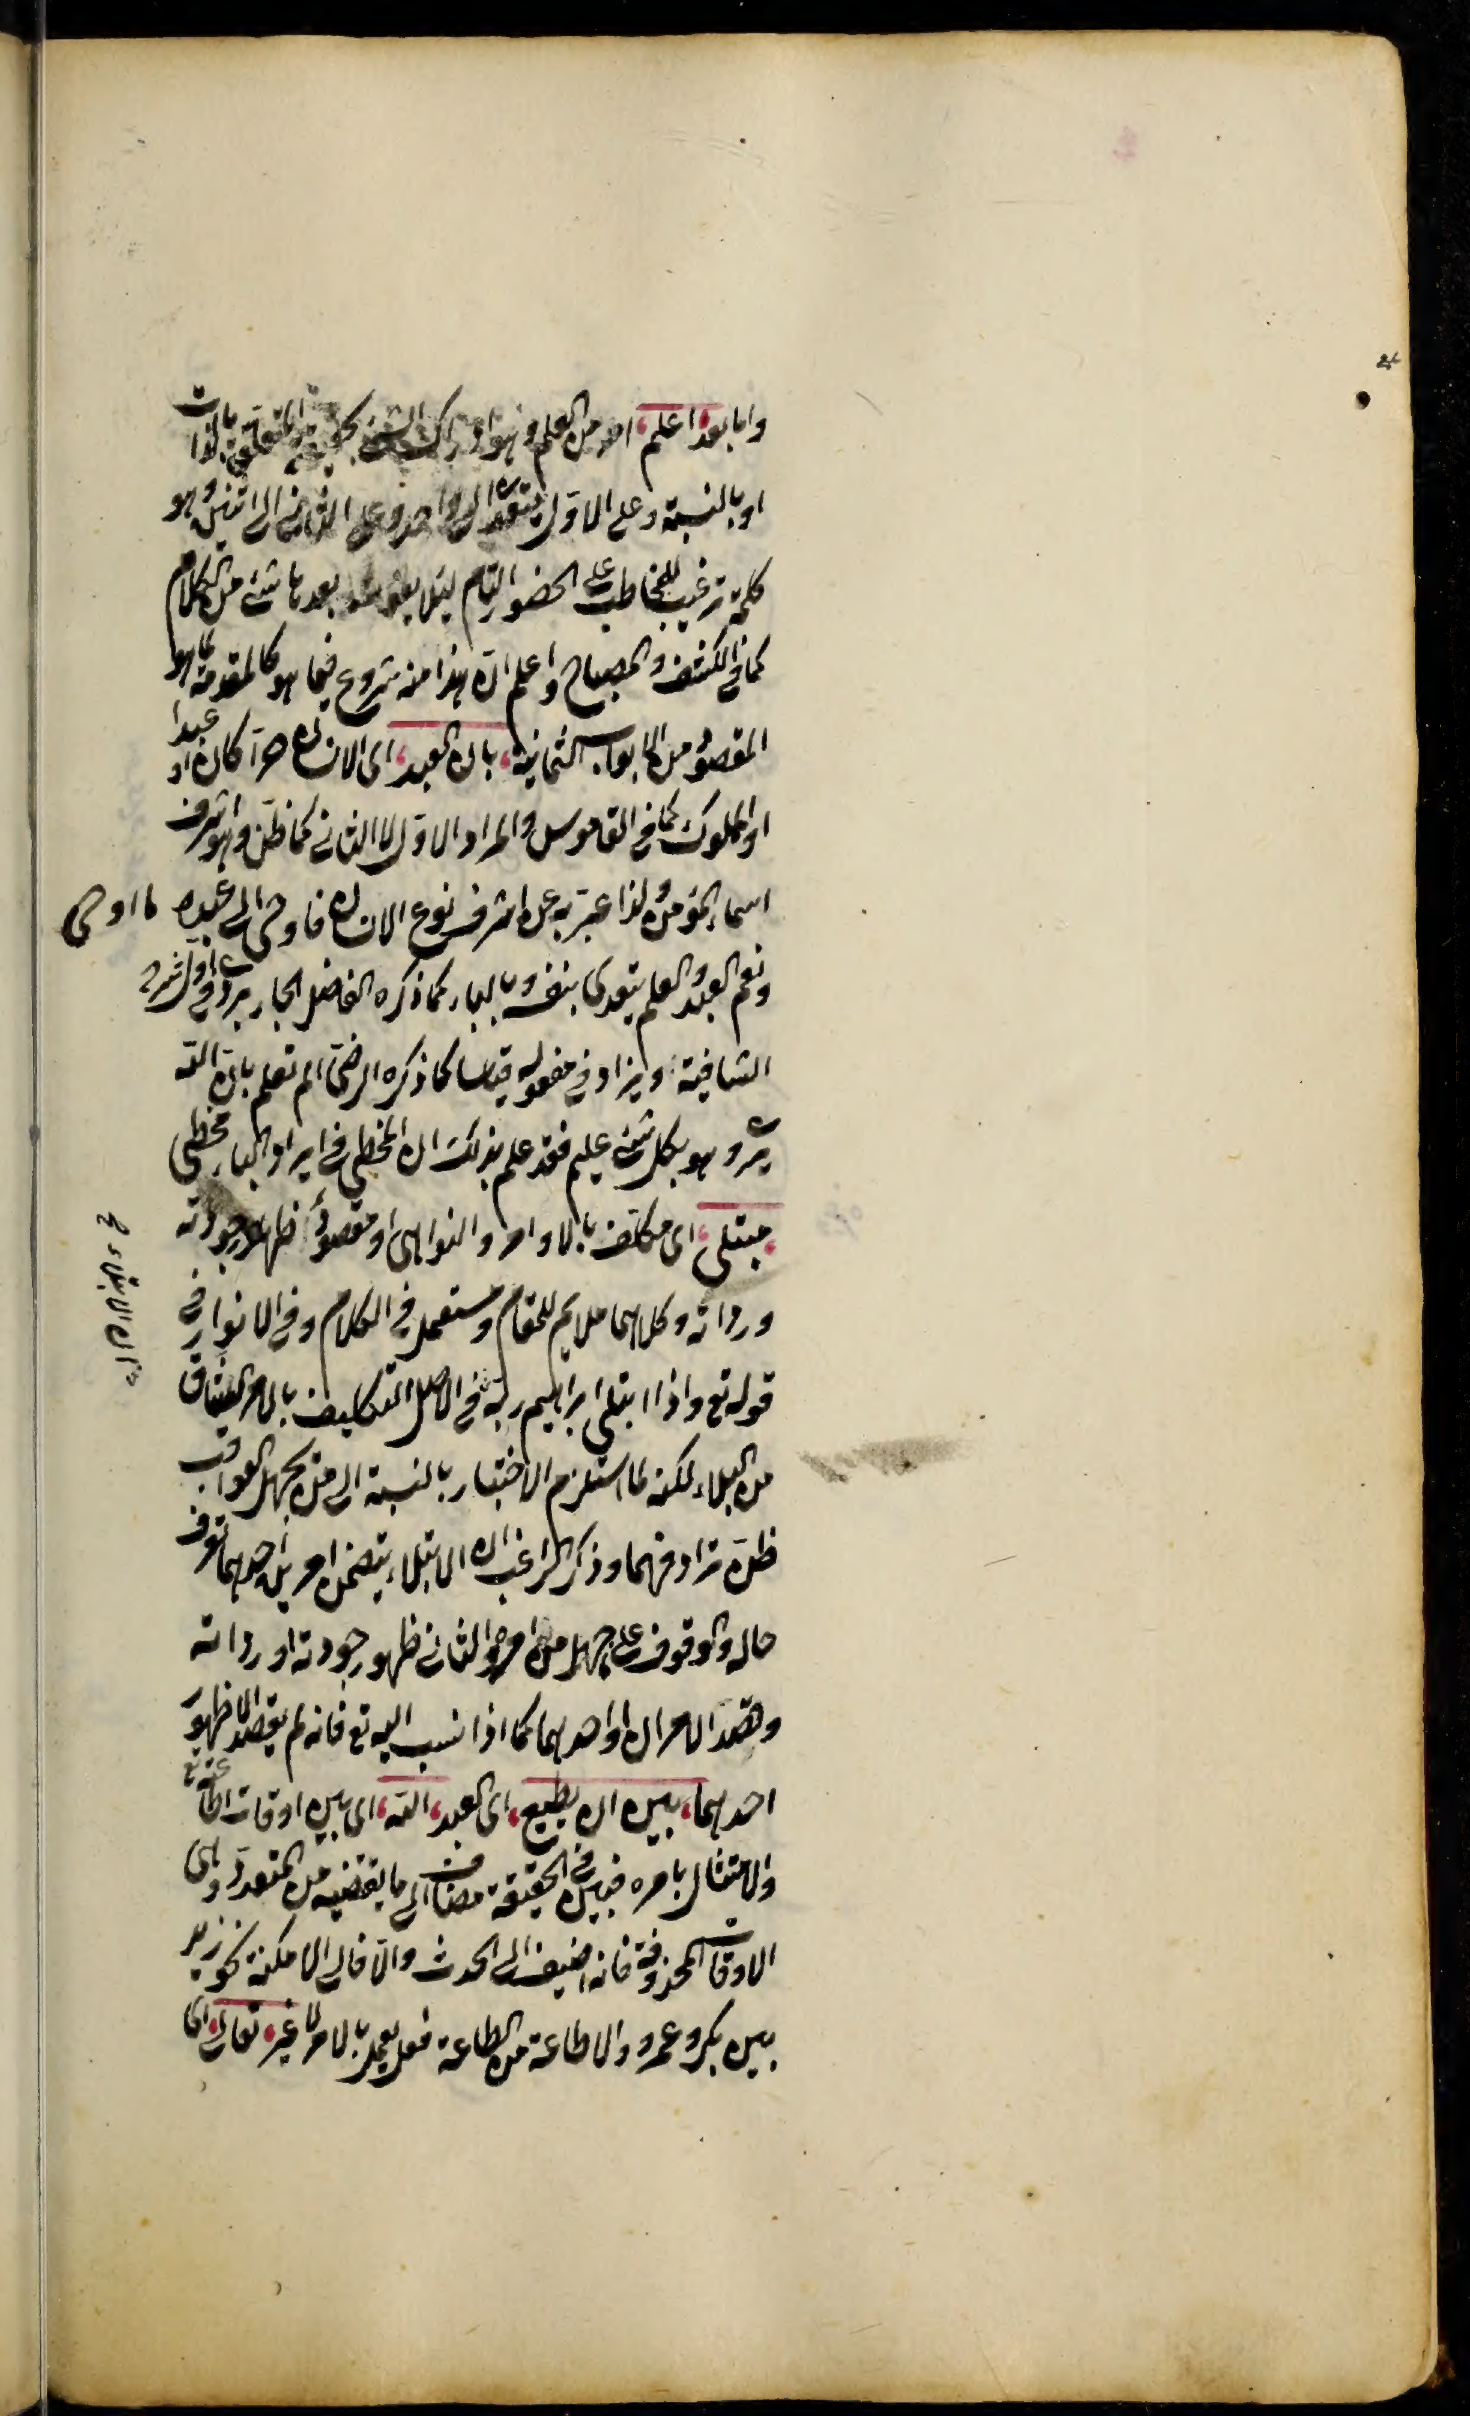 واما بعد اعلم امر من العلم وهو ادراك الشئ بحقيقته المتعلقة بالذات
او بالنسبة وعلى الاول يتعدى الى واحد وعلى الثاني الى اثنين وهو
كلمة ترغيب للمخاطب على الحضور التام لئلا يفوت بعدها شئ من الكلام
كما في الكشف والمصباح واعلم ان هذا منه شروع فيما هو كالمقدمة لما هو
المقصود من الابواب الثمانية بان العبد اى الانسان حرا كان او عبدا
او المملوك كما في القاموس والمراد الاول لا الثاني كما ظن وهو اشرف
اسماء المؤمن ولذا عبر به عن اشرف نوع الانسان فاوحى الى عبده ما اوحى
ونعم العبد والعلم يتعدى بنفسه وبالباء كما ذكره الفاضل الجاربردي في اول شرح
الشافية ويزاد في مفعوله قياسا كما ذكره الرضى الم تعلم بان الله
يرى وهو بكل شئ عليم فقد علم بذلك ان المخطئ في ايراد الباء مخطئ
مبتلى اى مكلف بالاوامر والنواهى او مقصود ظهور جودته
ورداته وكلاهما ملايم للمقام ومستعمل في الكلام وفي الانوار في
قوله تع واذا ابتلى ابراهيم ربه في الاصل التكليف بالامر الشاق
من البلاء لكنه لما استلزم الاختبار بالنسبة الى من يجهل العواقب
ظن ترادفهما وذكر الراغب ان الابتلاء يتضمن امرين احدهما تعرف
حاله والوقوف على ما جهل من امره والثاني ظهور جودته او رداته
وقصد الامران او احدهما كما اذا نسب اليه تع فانه لم يقصد الا ظهور
احدهما بين ان يطيع اى العبد الله اى بين اوقات اطاعته تع
والامتثال بامره فبين في الحقيقة مضاف الى ما يقتضيه من المتعدد وهى
الاوقات المحذوفة فانه اضيف الى الحدث والا فالى الامكنة نحو زيد
بين بكر وعمرو والاطاعة من الطاعة فعل يعمل بالامر لا غير تعالى اى